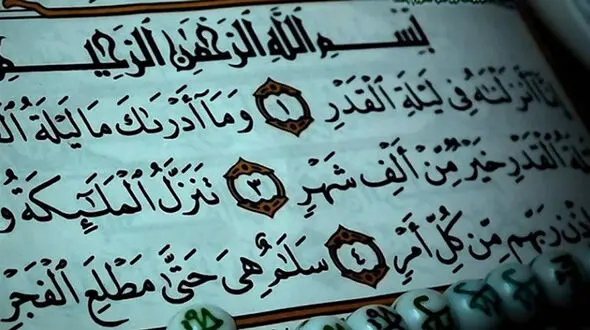 بِسْمِ اللَّهِ الرَّحْمَٰنِ الرَّحِيمِ
إِنَّا أَنزَلْنَاهُ فِي لَيْلَةِ الْقَدْرِ ١ وَمَا أَدْرَاكَ مَا لَيْلَةُ
الْقَدْرِ خَيْرٌ مِّنْ أَلْفِ شَهْرٍ ٣ تَنَزَّلُ الْمَلَائِكَةُ
رَبِّهِم مِّن كُلِّ أَمْرٍ ٤ سَلَامٌ هِيَ حَتَّىٰ مَطْلَعِ الْفَجْرِ